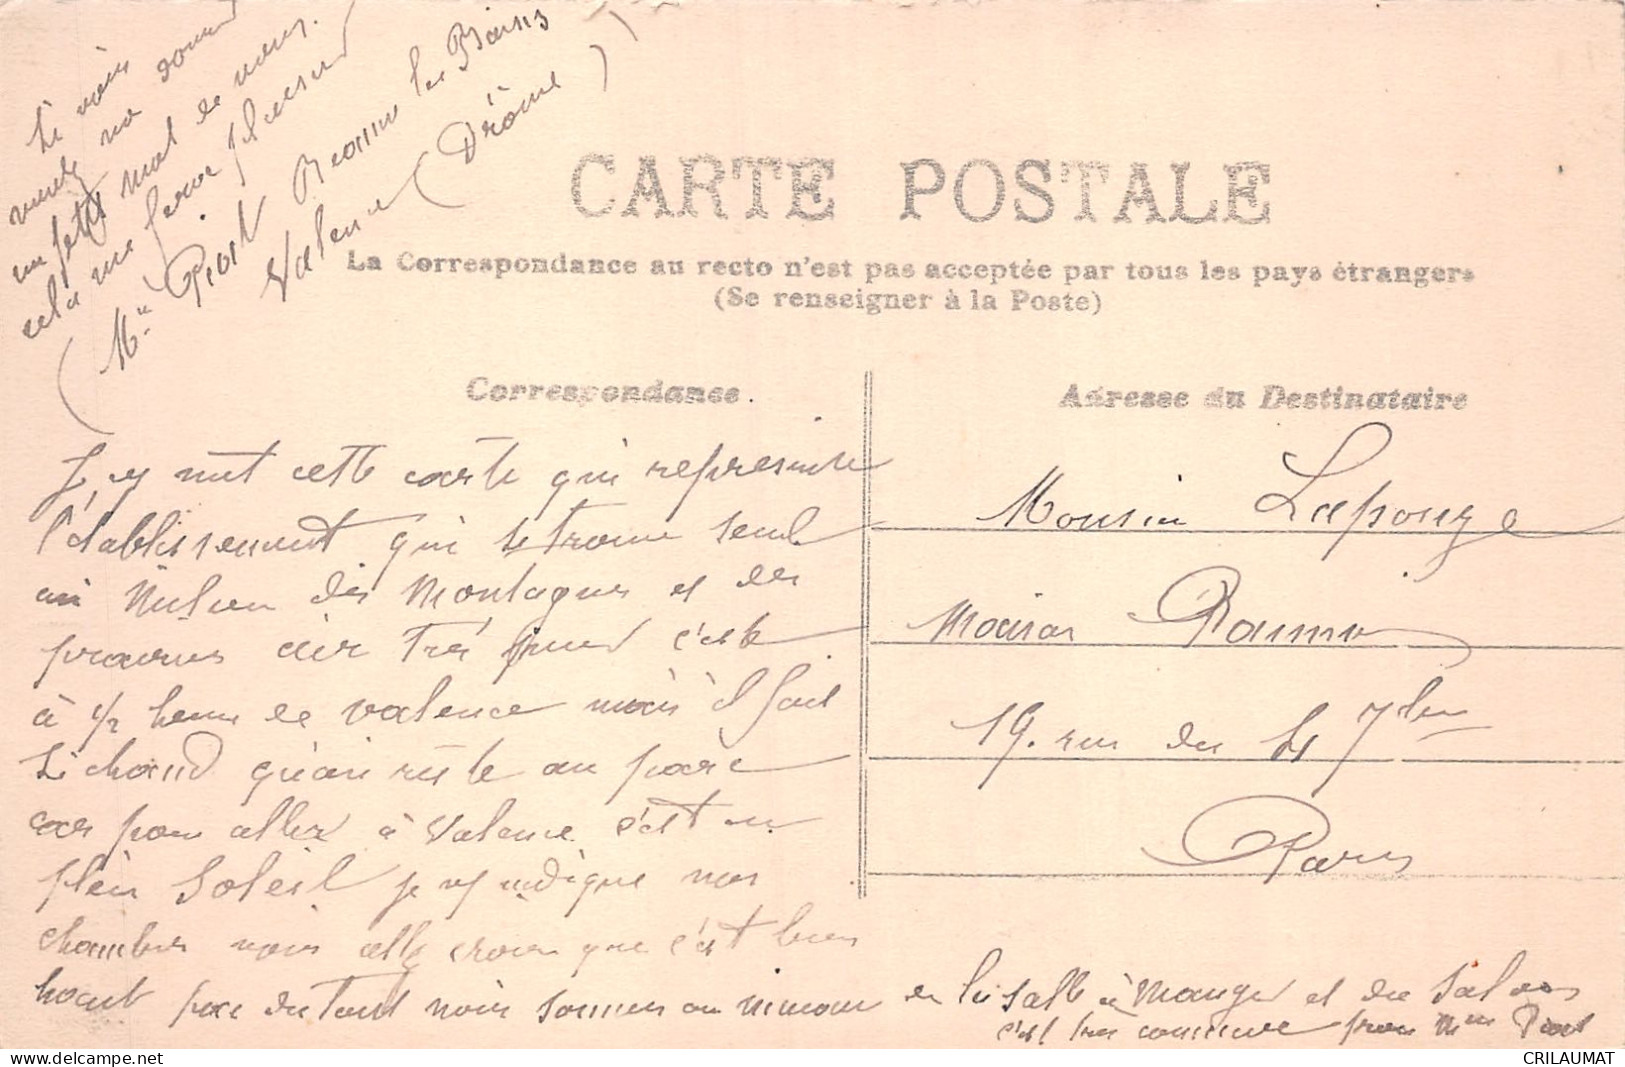 Si vous
voulez me donner
un petit mot de vous.
cela me fera plaisir
(Me Piot Beaume les Bains
Valence (Drôme))
CARTE POSTALE
La Correspondance au recto n'est pas acceptée par tous les pays étrangers
(Se renseigner à la Poste)
Correspondance.
Adresse du Destinataire
cette carte qui represente
l'établissement qui se trouve seul
au Milieu des Montagnes et des
air très pur c'est
à 1/2 heure de valence mais il fait
si chaud qu'on reste au parc
car pour aller à Valence c'est en
plein Soleil je vs indique nos
chambres mais allez croire que c'est bien
haut pas du tout nous sommes au niveau de la salle à Manger et du Salon
c'est très commode pour Mme Piot
Monsieur Lapouze
Maison
19. rue du 4 7bre
Paris
CRILAUMAT